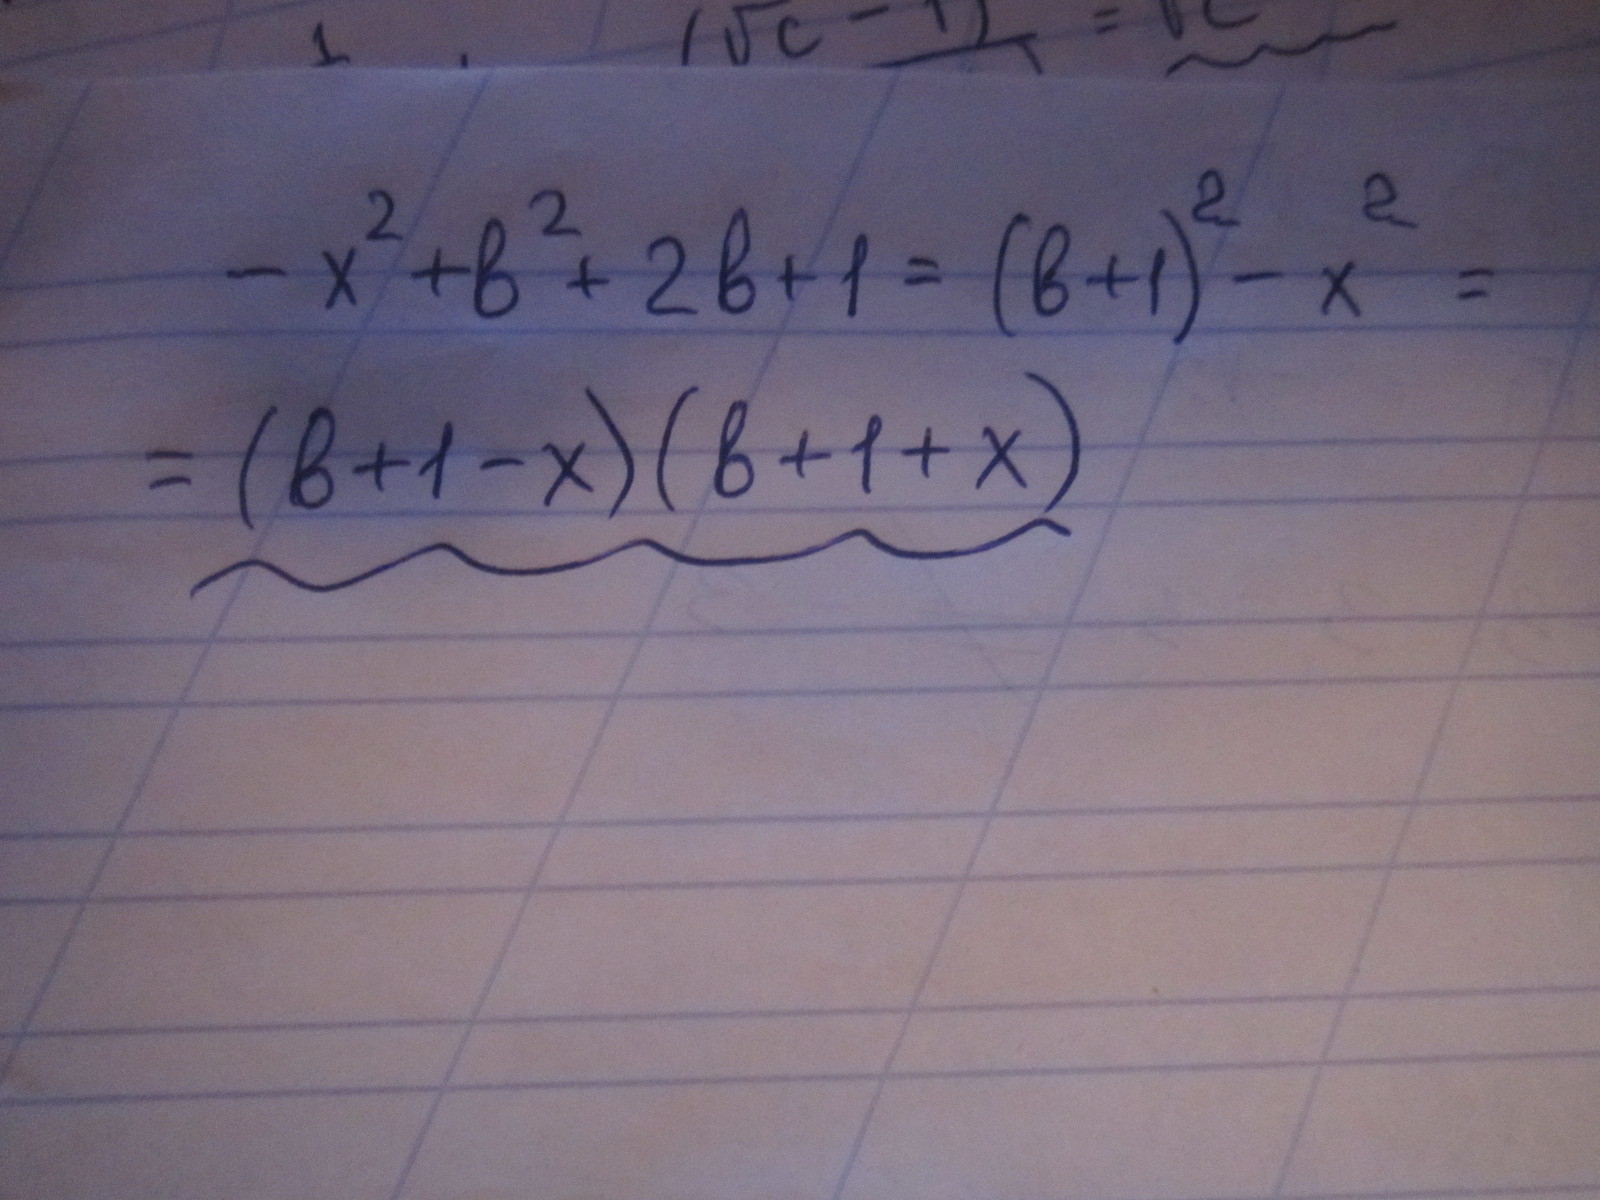 1 (√c - 1) = √c
- x² + b² + 2b + 1 = (b+1)² - x² =
= (b+1-x)(b+1+x)